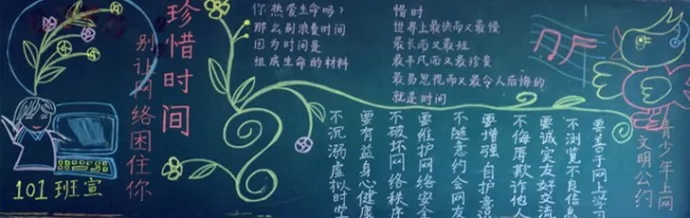 珍惜时间
别让网络困住你
101班宣
你热爱生命吗?
那么别浪费时间
因为时间是
组成生命的材料
惜时
世界上最快而又最慢
最长而又最短
最平凡而又最珍贵
最易忽视而又最令人后悔的
就是时间
青少年上网
文明公约
要善于网上学
不浏览不良信
要诚实友好交流
不侮辱欺诈他人
要增强自护意
不随意约会网
要维护网络安全
不破坏网络秩序
要有益身心健康
不沉溺虚拟时空